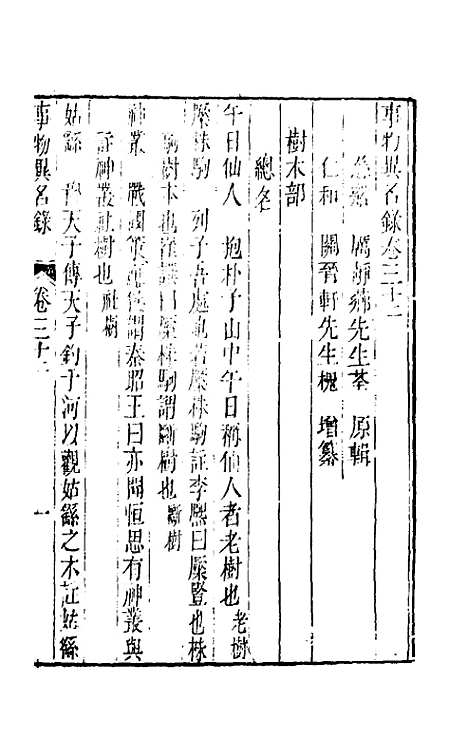 事物異名錄卷三十二
慈谿 厲靜薌先生荃 原輯
仁和 關晉軒先生槐 增纂
樹木部
總名
午日仙人 抱朴子山中午日稱仙人者老樹也 老樹
橜株駒 列子吾處也若橜株駒註李熙曰橜豎也株
駒樹本也 曰橜株駒謂斷樹也 斷樹
神叢 戰國策應侯謂秦昭王曰亦聞恒思有神叢與
註神叢社樹也 社樹
姑繇 穆天子傳天子釣于河以觀姑繇之木註姑繇
事物異名錄 卷三十二 一